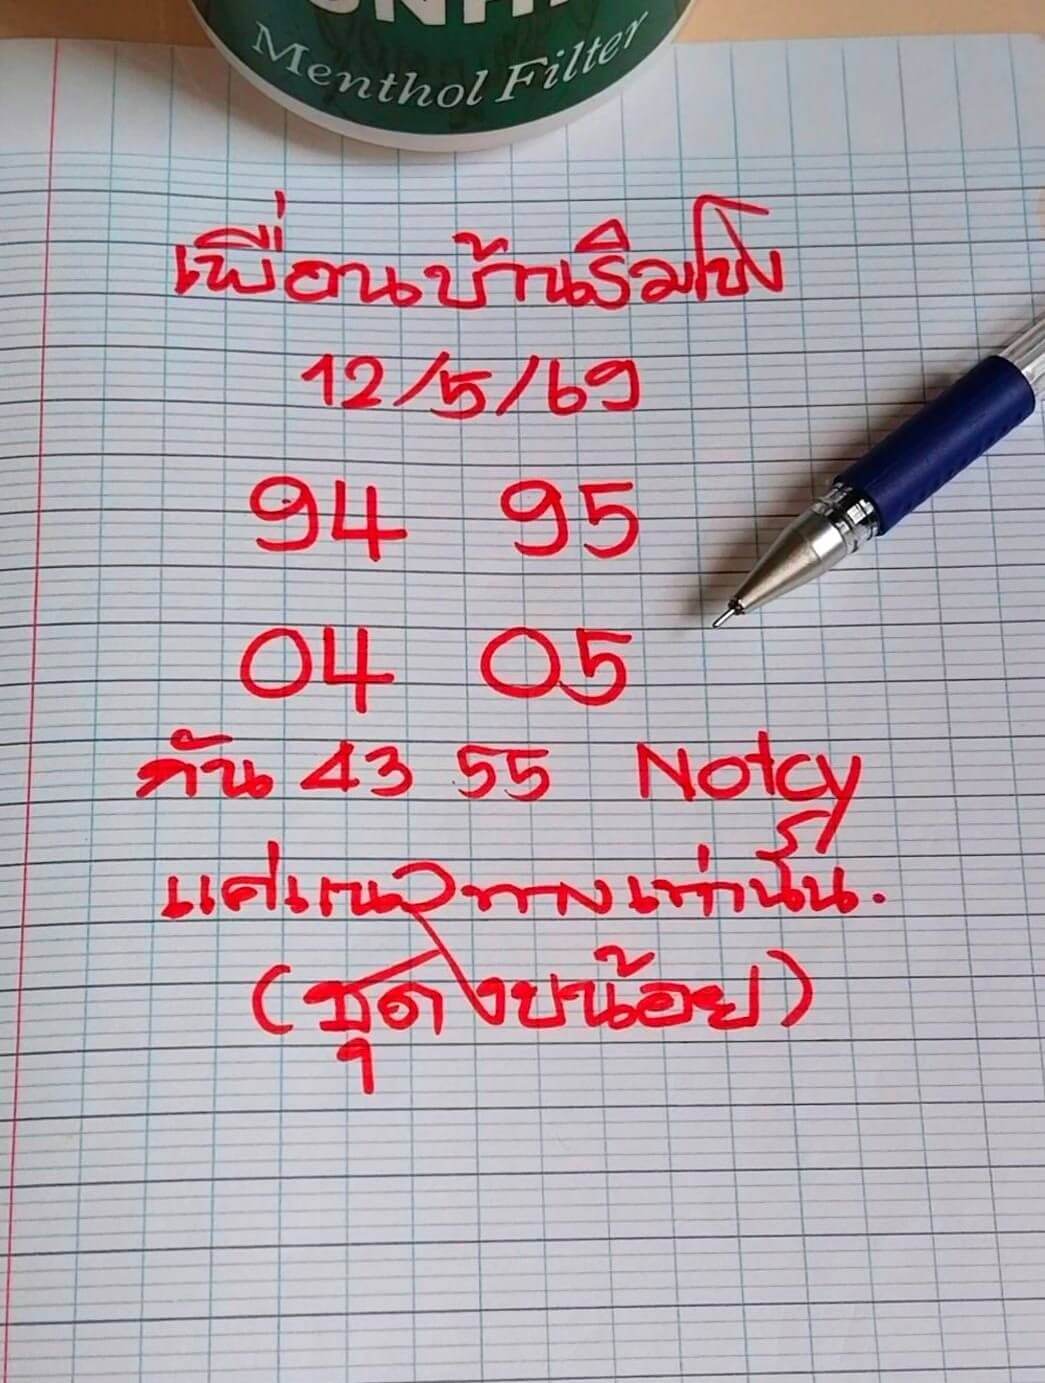 Menthol Filter
เพื่อนบ้านริมโขง
12/5/69
94 95
04 05
กัน 43 55 Notcy
แค่แนวทางเท่านั้น.
(ชุดงบน้อย)